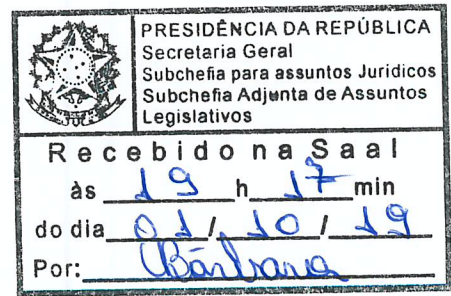 PRESIDÊNCIA DA REPÚBLICA
Secretaria Geral
Subchefia para assuntos Jurídicos
Subchefia Adjunta de Assuntos
Legislativos
Recebido na Saal
às 19 h 17 min
do dia 01 / 10 / 19
Por: Bárbara